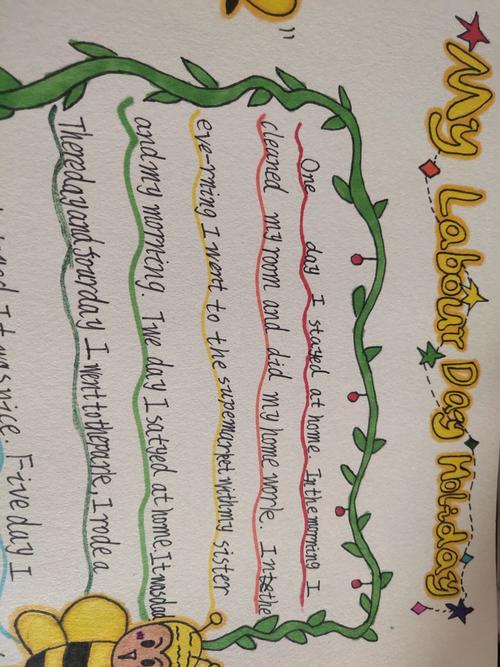 My Labour Day Holiday
One day I stayed at home. In the morning I
cleaned my room and did my home work. In the
eve-rning I went to the supermarpet with my sister
and my morrning. Twe day I satyed at home. It was
Thereday and fourday I went to the parke, I rode a
I twas nice. Fiveday I